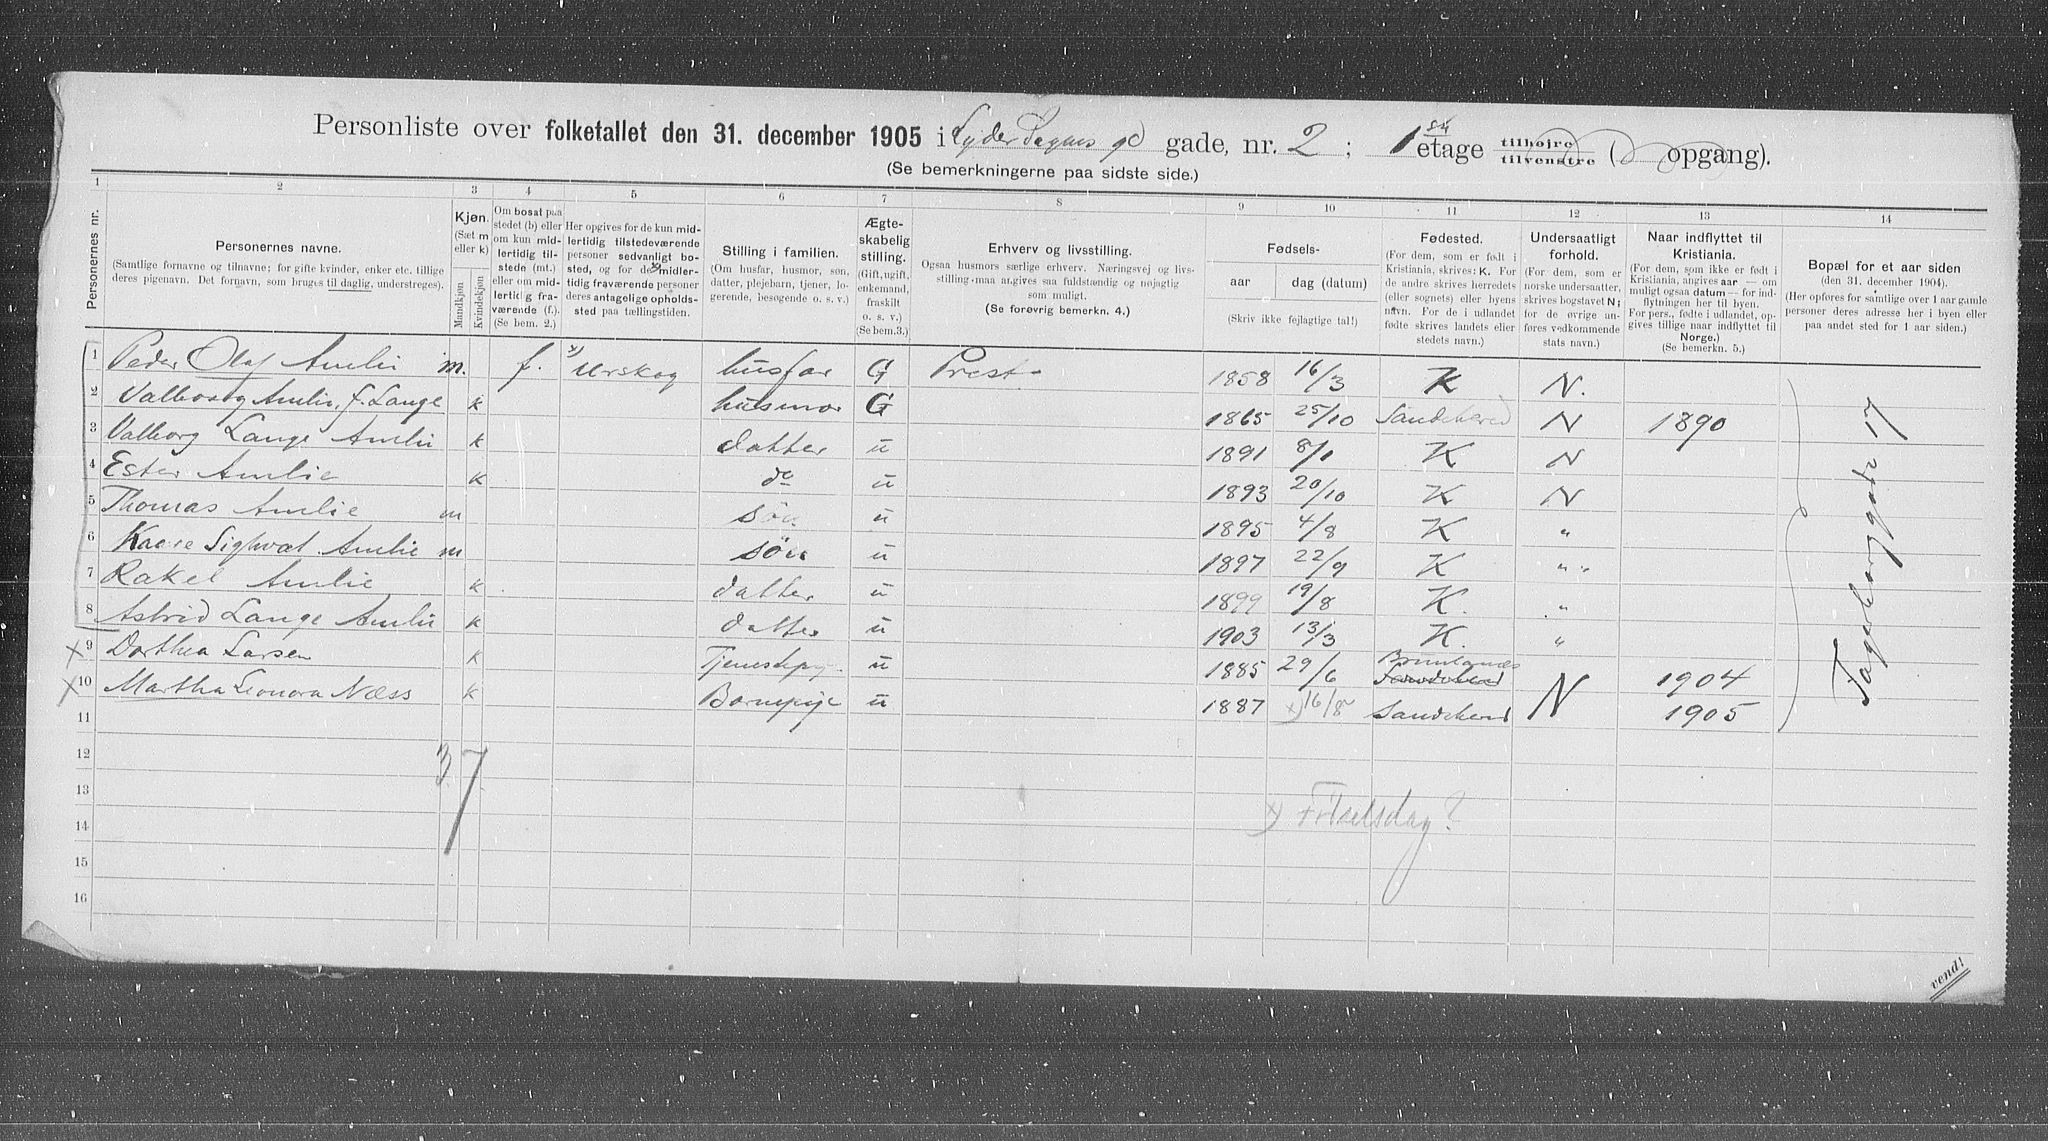 Personliste over folketallet den 31. december 1905 i Lyder Sagens gd gade, nr. 2 ; 1 st etage tilhøjre tilvenstre ( opgang).
(Se bemerkningerne paa sidste side.)
1 2 3 4 5 6 7 8 9 10 11 12 13 14
Personernes nr.
Personernes navne.
(Samtlige fornavne og tilnavne; for gifte kvinder, enker etc. tillige
deres pigenavn. Det fornavn, som bruges til daglig, understreges).
Kjøn.
(Sæt m
eller k)
Mandkjøn
Kvindekjøn
Om bosat paa
stedet (b) eller
om kun mid-
lertidig til-
stede (mt.)
eller om mid-
lertidig fra-
værende (f.).
(Se bem. 2.)
Her opgives for de kun mid-
lertidig tilstedeværende
personer sedvanlig bo-
sted, og for de x) midler-
tidig fraværende personer
deres antagelige opholds-
sted paa tællingstiden.
Stilling i familien.
(Om husfar, husmor, søn,
datter, plejebarn, tjener, lo-
gerende, besøgende o. s. v.)
Ægte-
skabelig
stilling.
(Gift, ugift,
enkemand,
fraskilt
o. s. v.)
(Se bem.3.)
Erhverv og livsstilling.
Ogsaa husmors særlige erhverv. Næringsvej og livs-
stilling maa angives saa fuldstændig og nøjagtig
som muligt.
(Se forøvrig bemerkn. 4.)
Fødsels-
aar dag (datum)
(Skriv ikke fejlagtige tal!)
Fødested.
(For dem, som er født i
Kristiania, skrives: K. For
de andre skrives herredets
(eller sognets) eller byens
navn. For de i udlandet
fødte skrives landets eller
stedets navn.)
Undersaatligt
forhold.
(For dem, som er
norske undersaatter,
skrives bogstavet N;
for de øvrige an-
føres vedkommende
stats navn.)
Naar indflyttet til
Kristiania.
(For dem, som ikke er født i
Kristiania, angives aar — om
muligt ogsaa datum — for ind-
flytningen her til byen.
For pers., fødte i udlandet, op-
gives tillige naar indflyttet til
Norge.)
(Se bemerkn. 5.)
Bopæl for et aar siden
(den 31. december 1904).
(Her opføres for samtlige over 1 aar gamle
personer deres adresse her i byen eller
paa andet sted for 1 aar siden.)
1 Peder Olaf Amlie m. f. x) Urskog husfar G Prest 1858 16/3 K N.
2 Valborg Amlie, f. Lange k husmor G 1865 25/10 Sandeherred N 1890
3 Valborg Lange Amlie k datter u 1891 8/1 K N
4 Ester Amlie k do u 1893 20/10 K N
5 Thomas Amlie m søn u 1895 4/8 K "
6 Kaare Sighvat Amlie m søn u 1897 22/9 K " "
7 Rakel Amlie k datter u 1899 19/8 K. "
8 Astrid Lange Amlie k datter u 1903 13/3 K. "
x 9 Dorthea Larsen k Tjenestepg. u 1885 29/6 Brunlanes Sandeherred 1904
x 10 Martha Leonora Næss k Barnepige u 1887 x) 16/8 Sandeherred N 1905
Fagerborggate 17
11
12
3. 7
13
x) Fødselsdag?
14
15
16
vend!